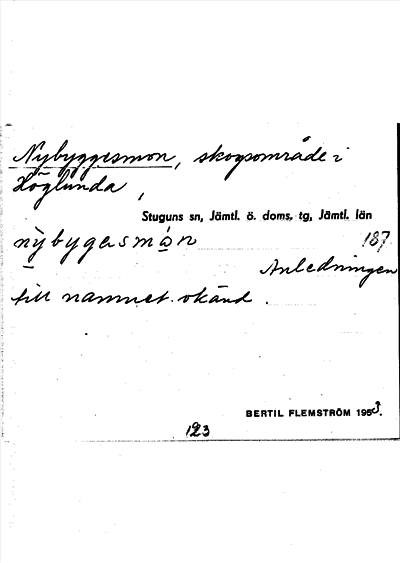 Nybyggesmon, skogsområde i
Höglunda,
Stuguns sn, Jämtl. ö. doms. tg, Jämtl. län
nỳbygesmọn 187
Anledningen
till namnet okänd.
BERTIL FLEMSTRÖM 195
123